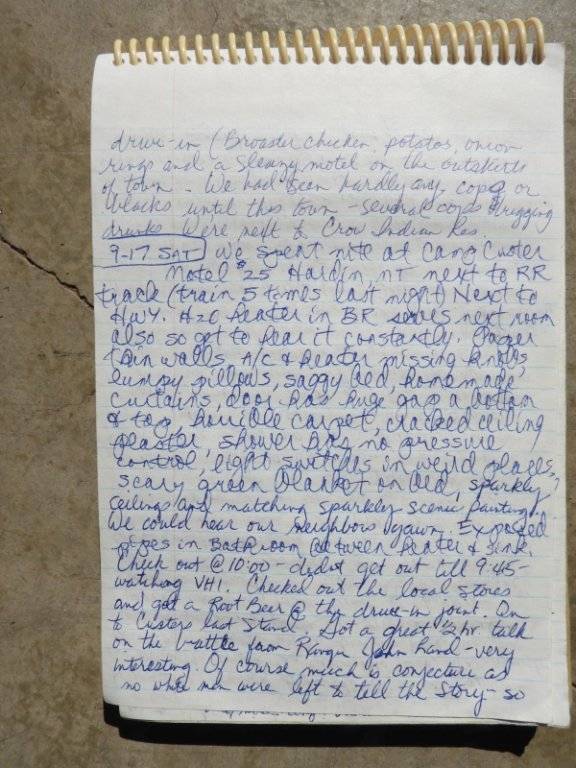 drive-in (Broaster chicken, potatos, onion
rings and a sleazy motel on the outskirts
of town. We had seen hardly any cops or
blacks until this town - several cops & drugging
drunks were next to Crow Indian Res.
9-17 SAT We spent nite at Camp Custer
Motel $25 Hardin MT next to RR
track (train 5 times last night) Next to
Hwy. H2O heater in BR serves next room
also so get to hear it constantly. Paper
thin walls, A/C & heater missing knobs,
lumpy pillows, saggy bed, homemade
curtains, door has huge gap @ bottom
& top, horrible carpet, cracked ceiling
plaster, shower has no pressure
control, light switches in weird places,
scary green blanket on bed, sparkly
ceilings and matching sparkly scenic painting.
We could hear our neighbors yawn. Exposed
pipes in Bathroom between heater & sink.
Check out @ 10:00 - didnt get out till 9:45 -
watching VH1. Checked out the local stores
and got a Root Beer @ the drive-in joint. On
to Custers Last Stand. Got a great 1/2 hr. talk
on the battle from Ranger John Hand - very
interesting. Of course much is conjecture as
no white men were left to tell the story - so